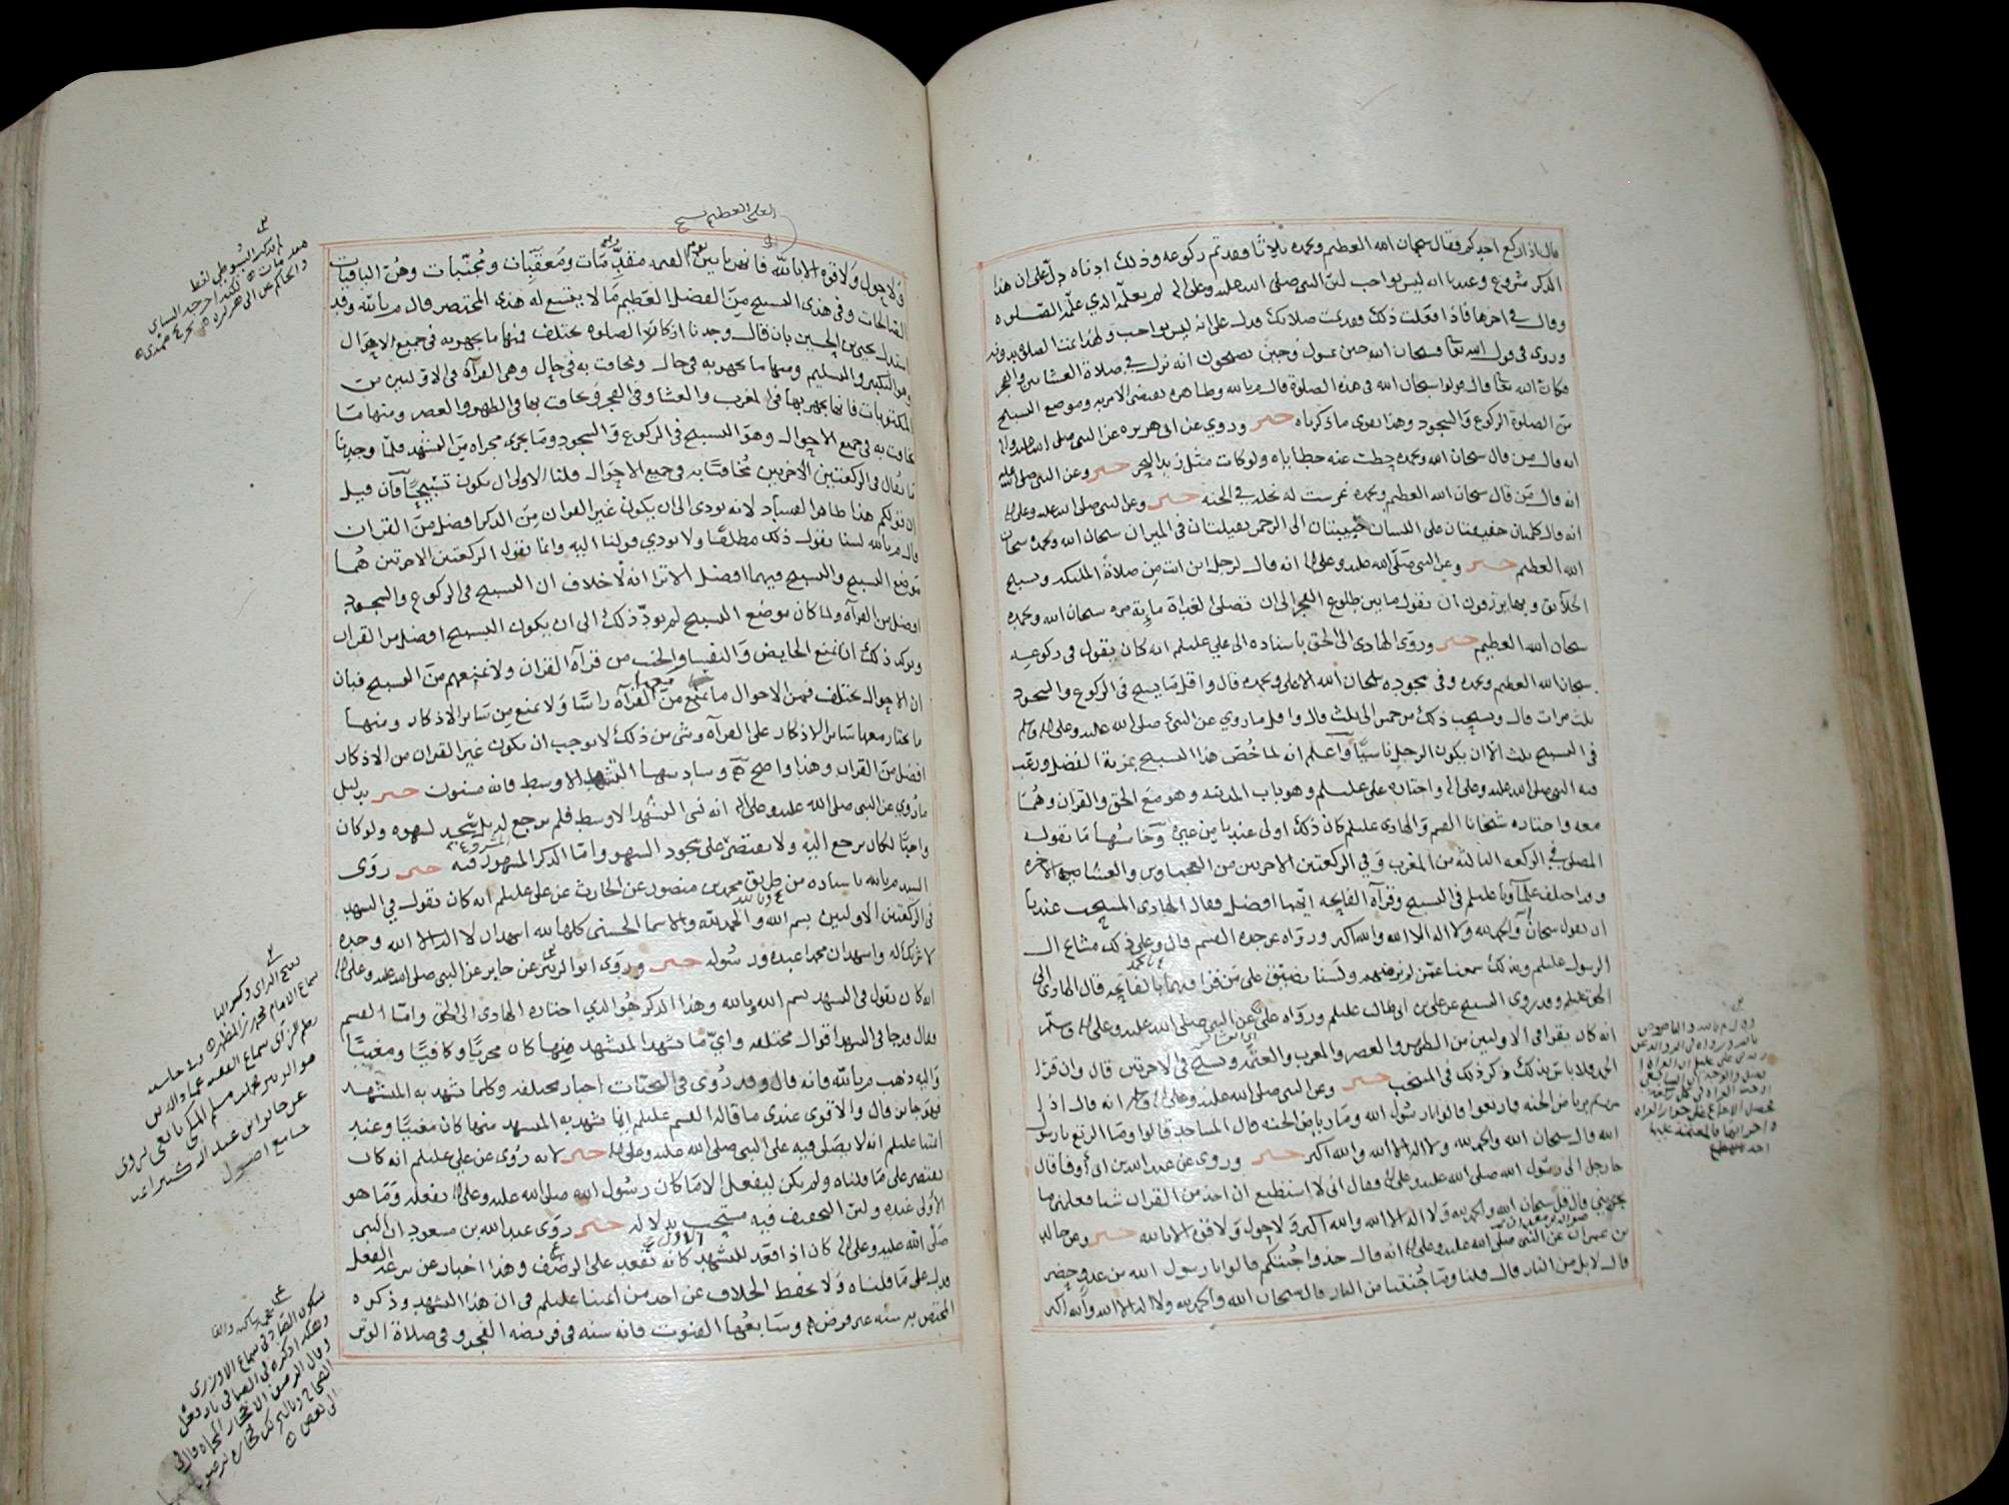 قال اذا ركع احدكم فقال سبحان الله العظيم وبحمده ثلاثا فقد تم ركوعه وذلك ادناه دل على ان هذا
الذكر مشروع وعندنا انه ليس بواجب لان النبي صلى الله عليه وعلى اله لم يعلمه الذي علمه الصلوه
وقال في اخرها فاذا فعلت ذلك فقد تمت صلاتك فدل على انه ليس بواجب ولهذا تمت الصلوة بدونه
وروى في قول الله تعا فسبحان الله حين تمسون وحين تصبحون انه نزل في صلاة العشا من والفجر
فكان الله تعا قال قولوا سبحان الله في هذه الصلوة قال م بالله وظاهره يقتضى الامر به وموضع التسبيح
من الصلوة الركوع والسجود وهذا يقوى ما ذكرناه خبر وروي عن ابى هريره عن النبي صلى الله عليه واله
انه قال من قال سبحان الله وبحمده حطت عنه خطاياه ولو كانت مثل زبد البحر خبر وعن النبي صلى الله عليه
انه قال من قال سبحان الله العظيم وبحمده غرست له نخله في الجنه خبر وعن النبي صلى الله عليه وعلى اله
انه قال كلمتان خفيفتان على اللسان حبيبتان الى الرحمن ثقيلتان في الميزان سبحان الله وبحمده سبحان
الله العظيم خبر وعن النبي صلى الله عليه وعلى اله انه قال لرجل اين انت من صلاة الملئكه وتسبيح
الخلايق وبها يرزقون ان تقول ما بين طلوع الفجر الى ان تصلى الغداة ماية مره سبحان الله وبحمده
سبحان الله العظيم خبر وروى الهادى الى الحق باسناده الى علي عليلم انه كان يقول في ركوعه
سبحان الله العظيم وبحمده وفي سجوده سبحان الله الاعلى وبحمده قال واقل ما يسبح في الركوع والسجود
ثلث مرات قال ويستحب ذلك من خمس الى ثلث قال واقل ما روي عن النبي صلى الله عليه وعلى اله وسلم
في التسبيح ثلث الا ان يكون الرجل ناسيا واعلم انه لما خص هذا التسبيح بمزية الفضل ورغب
فيه النبي صلى الله عليه وعلى اله واختاره علي عليلم وهو باب المدينه وهو مع الحق والقران وهما
معه واختاره شيخانا القسم والهادى عليلم كان ذلك اولى عندنا من غيره وخامسها ما يقوله
المصلى في الركعه الثالثه من المغرب وفي الركعتين الاخرتين من العجماوين والعشا الاخره
وقد اختلف علماونا عليلم في التسبيح وقرآة الفاتحه ايهما افضل فقال الهادى المستحب عندنا
ان يقول سبحان الله والحمد لله ولا اله الا الله والله اكبر ورواه عن جده القسم قال وعلى ذلك مشايخ ال
الرسول عليلم وبذلك سمعنا عمن لم نره منهم ولسنا نضيق على من قرا فيهما بالفاتحه قال الهادى الى
الحق عليلم وقد روى التسبيح عن علي بن ابى طالب عليلم ورواه علي عن النبي صلى الله عليه وعلى اله وسلم
انه كان يقرا في الاوليين من الظهر والعصر والمغرب والعتمه ويسبح في الاخرتين قال وان قرا
الحمد فلا باس بذلك ذكر ذلك في المنتخب خبر وعن النبي صلى الله عليه وعلى اله وسلم انه قال اذا
مررتم برياض الجنه فارتعوا قالوا يا رسول الله وما رياض الجنه قال المساجد قالوا وما الرتع يا رسول
الله قال سبحان الله والحمد لله ولا اله الا الله والله اكبر خبر وروى عن عبد الله بن ابى اوفا قال
جا رجل الى رسول الله صلى الله عليه وعلى اله فقال انى لا استطيع ان اخذ من القران شيا فعلمني ما
يجزيني قال قل سبحان الله والحمد لله ولا اله الا الله والله اكبر ولا حول ولا قوه الا بالله خبر وعن خالد
بن عمران عن النبي صلى الله عليه وعلى اله انه قال خذوا جنتكم قالوا يا رسول الله من عدو حضر
قال لا بل من النار قال قلنا وما جنتنا من النار قال سبحان الله والحمد لله ولا اله الا الله والله اكبر
العلي العظيم
ولا حول ولا قوه الا بالله فانهن ياتين يوم القيمه مقدمات ومعقبات ومجنبات وهن الباقيات
الصالحات وفي هذى التسبيح من الفضل العظيم ما لا يتسع له هذى المختصر قال م بالله وقد
استدل يحيى بن الحسين بان قال وجدنا اذكار الصلوه تختلف فمنها ما يجهر به في جميع الاحوال
وهو التكبير والتسليم ومنها ما يجهر به في حال ويخافت به في حال وهي القرآة في الاوليين من
المكتوبات فانها يجهر بها في المغرب والعشا وفي الفجر ويخافت بها في الظهر والعصر ومنها ما
يخافت به في جميع الاحوال وهو التسبيح في الركوع والسجود وما يجرى مجراه من التشهد فلما وجدنا
ما يقال في الركعتين الاخريين مخافتا به في جميع الاحوال قلنا الاولى ان يكون تسبيحا فان قيل
ان قولكم هذا ظاهر الفساد لانه يودى الى ان يكون غير القران من الذكر افضل من القران
قال م بالله لسنا نقول ذلك مطلقا ولا يودي قولنا اليه وانما نقول الركعتين الاخرتين هما
موضع التسبيح والتسبيح فيهما افضل الا ترا انه لا خلاف ان التسبيح في الركوع والسجود
افضل من القرآه ولما كان موضع التسبيح لم يود ذلك الى ان يكون التسبيح افضل من القران
ويوكد ذلك انا نمنع الحايض والنفسا والجنب من قرآة القران ولا نمنعهم من التسبيح فبان
ان الاحوال تختلف فمن الاحوال ما يمنع معها من القرآة راسا ولا يمنع من ساير الاذكار ومنها
ما يختار معها ساير الاذكار على القرآه وشي من ذلك لا يوجب ان يكون غير القران من الاذكار
افضل من القران وهذا واضح وسادسها التشهد الاوسط فانه مسنون خبر بدليل
ما روي عن النبي صلى الله عليه وعلى اله انه نسى التشهد الاوسط فلم يرجع له بل سجد لسهوه ولو كان
واجبا لكان يرجع اليه ولا يقتصر على سجود السهو واما الذكر المشروع فيه خبر روى
السيد م بالله باسناده من طريق محمد بن منصور عن الحارث عن علي عليلم انه كان يقول في التشهد
في الركعتين الاوليين بسم الله وبالله والحمد لله والاسما الحسنى كلها لله اشهد ان لا اله الا الله وحده
لا شريك له واشهد ان محمدا عبده ورسوله خبر وروى ابوالزبير عن جابر عن النبي صلى الله عليه وعلى اله
انه كان يقول في التشهد بسم الله وبالله وهذا الذكر هو الذي اختاره الهادى الى الحق واما القسم
فقال وجا في التشهد اقوال مختلفه واي ما تشهد المتشهد منها كان مجزيا وكافيا ومغنيا
واليه ذهب م بالله فانه قال وقد روى في التحيات اخبار مختلفه وكلما تشهد به المتشهد
فهو جايز قال والاقوى عندى ما قاله القسم عليلم ايما تشهد به المتشهد منها كان مغنيا وعند
ائمتنا عليلم انه لا يصلى فيه على النبي صلى الله عليه وعلى اله خبر لانه روى عن علي عليلم انه كان
يقتصر على ما قلناه ولم يكن ليفعل الا ما كان رسول الله صلى الله عليه وعلى اله يفعله وما هو
الاولى عنده ولان التخفيف فيه مستحب بدلاله خبر روى عبد الله بن مسعود ان النبي
صلى الله عليه وعلى اله كان اذا قعد للتشهد الاول كانه يقعد على الرضف وهذا اخبار عن سرعه الفعل
فدل على ما قلناه ولا يحفظ الخلاف عن احد من ائمتنا عليلم في ان هذا التشهد وذكره
المختص به سنه غير فرض وسابعها القنوت فانه سنه في فريضه الفجر وفي صلاة الوتر
لم يذكر السيوطي لفظ
جامع اصول